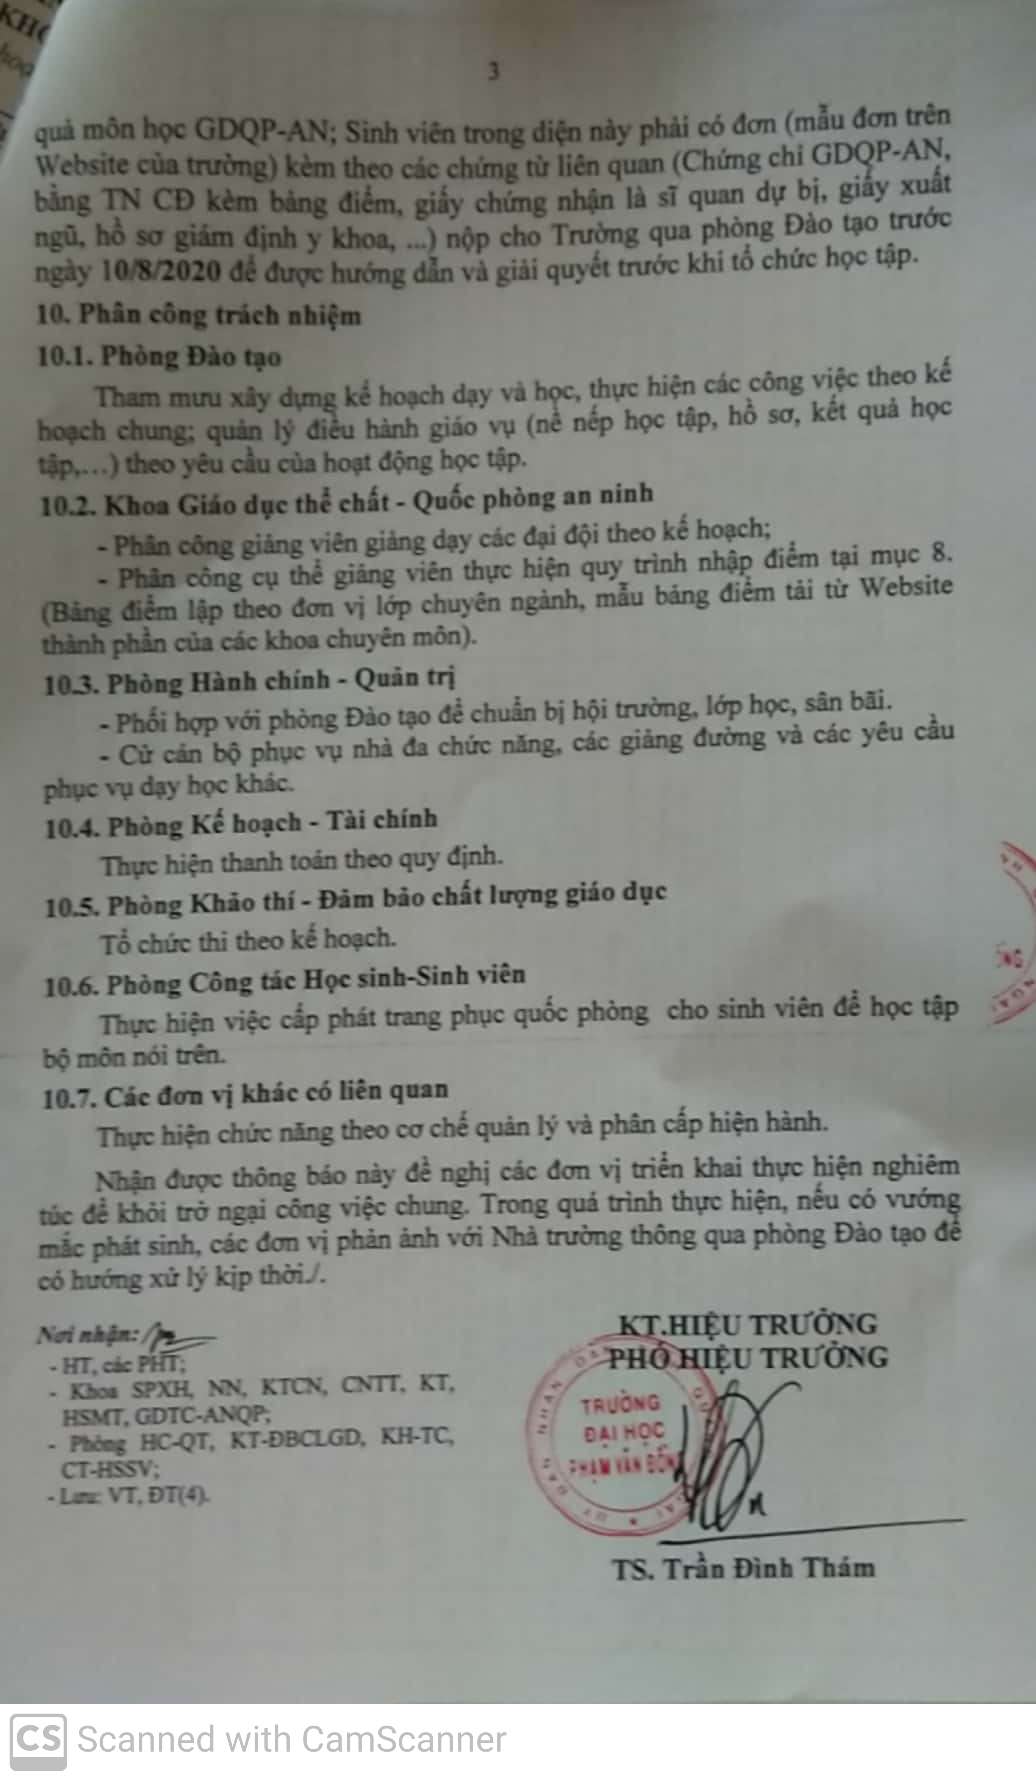 KH
3
quả môn học GDQP-AN; Sinh viên trong diện này phải có đơn (mẫu đơn trên
Website của trường) kèm theo các chứng từ liên quan (Chứng chỉ GDQP-AN,
bằng TN CĐ kèm bảng điểm, giấy chứng nhận là sĩ quan dự bị, giấy xuất
ngũ, hồ sơ giám định y khoa, ...) nộp cho Trường qua phòng Đào tạo trước
ngày 10/8/2020 để được hướng dẫn và giải quyết trước khi tổ chức học tập.
10. Phân công trách nhiệm
10.1. Phòng Đào tạo
Tham mưu xây dựng kế hoạch dạy và học, thực hiện các công việc theo kế
hoạch chung; quản lý điều hành giáo vụ (nề nếp học tập, hồ sơ, kết quả học
tập,...) theo yêu cầu của hoạt động học tập.
10.2. Khoa Giáo dục thể chất - Quốc phòng an ninh
- Phân công giảng viên giảng dạy các đại đội theo kế hoạch;
- Phân công cụ thể giảng viên thực hiện quy trình nhập điểm tại mục 8.
(Bảng điểm lập theo đơn vị lớp chuyên ngành, mẫu bảng điểm tải từ Website
thành phần của các khoa chuyên môn).
10.3. Phòng Hành chính - Quản trị
- Phối hợp với phòng Đào tạo để chuẩn bị hội trường, lớp học, sân bãi.
- Cử cán bộ phục vụ nhà đa chức năng, các giảng đường và các yêu cầu
phục vụ dạy học khác.
10.4. Phòng Kế hoạch - Tài chính
Thực hiện thanh toán theo quy định.
10.5. Phòng Khảo thí - Đảm bảo chất lượng giáo dục
Tổ chức thi theo kế hoạch.
10.6. Phòng Công tác Học sinh-Sinh viên
Thực hiện việc cấp phát trang phục quốc phòng cho sinh viên để học tập
bộ môn nói trên.
10.7. Các đơn vị khác có liên quan
Thực hiện chức năng theo cơ chế quản lý và phân cấp hiện hành.
Nhận được thông báo này đề nghị các đơn vị triển khai thực hiện nghiêm
túc để khỏi trở ngại công việc chung. Trong quá trình thực hiện, nếu có vướng
mắc phát sinh, các đơn vị phản ảnh với Nhà trường thông qua phòng Đào tạo để
có hướng xử lý kịp thời./.
Nơi nhận:
- HT, các PHT;
- Khoa SPXH, NN, KTCN, CNTT, KT,
HSMT, GDTC-ANQP;
- Phòng HC-QT, KT-ĐBCLGD, KH-TC,
CT-HSSV;
- Lưu: VT, ĐT(4).
KT.HIỆU TRƯỞNG
PHÓ HIỆU TRƯỞNG
TRƯỜNG
ĐẠI HỌC
PHẠM VĂN ĐỒNG
TS. Trần Đình Thám
CS Scanned with CamScanner